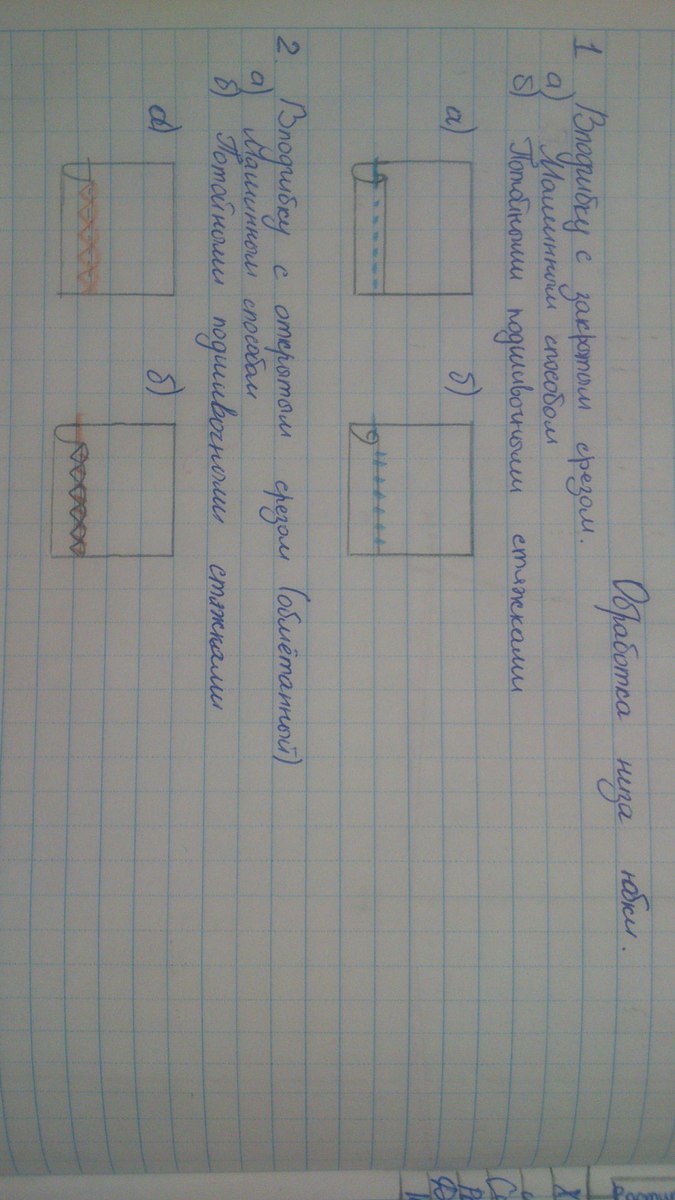 Обработка низа юбки.
1 Вподшивку с закрытым срезом.
а) Машинным способом
б) Потайными подшивочными стяжками
а) б)
2. Вподшивку с открытым срезом (обмётанный)
а) Машинным способом
б) Потайными подшивочными стяжками
а) б)